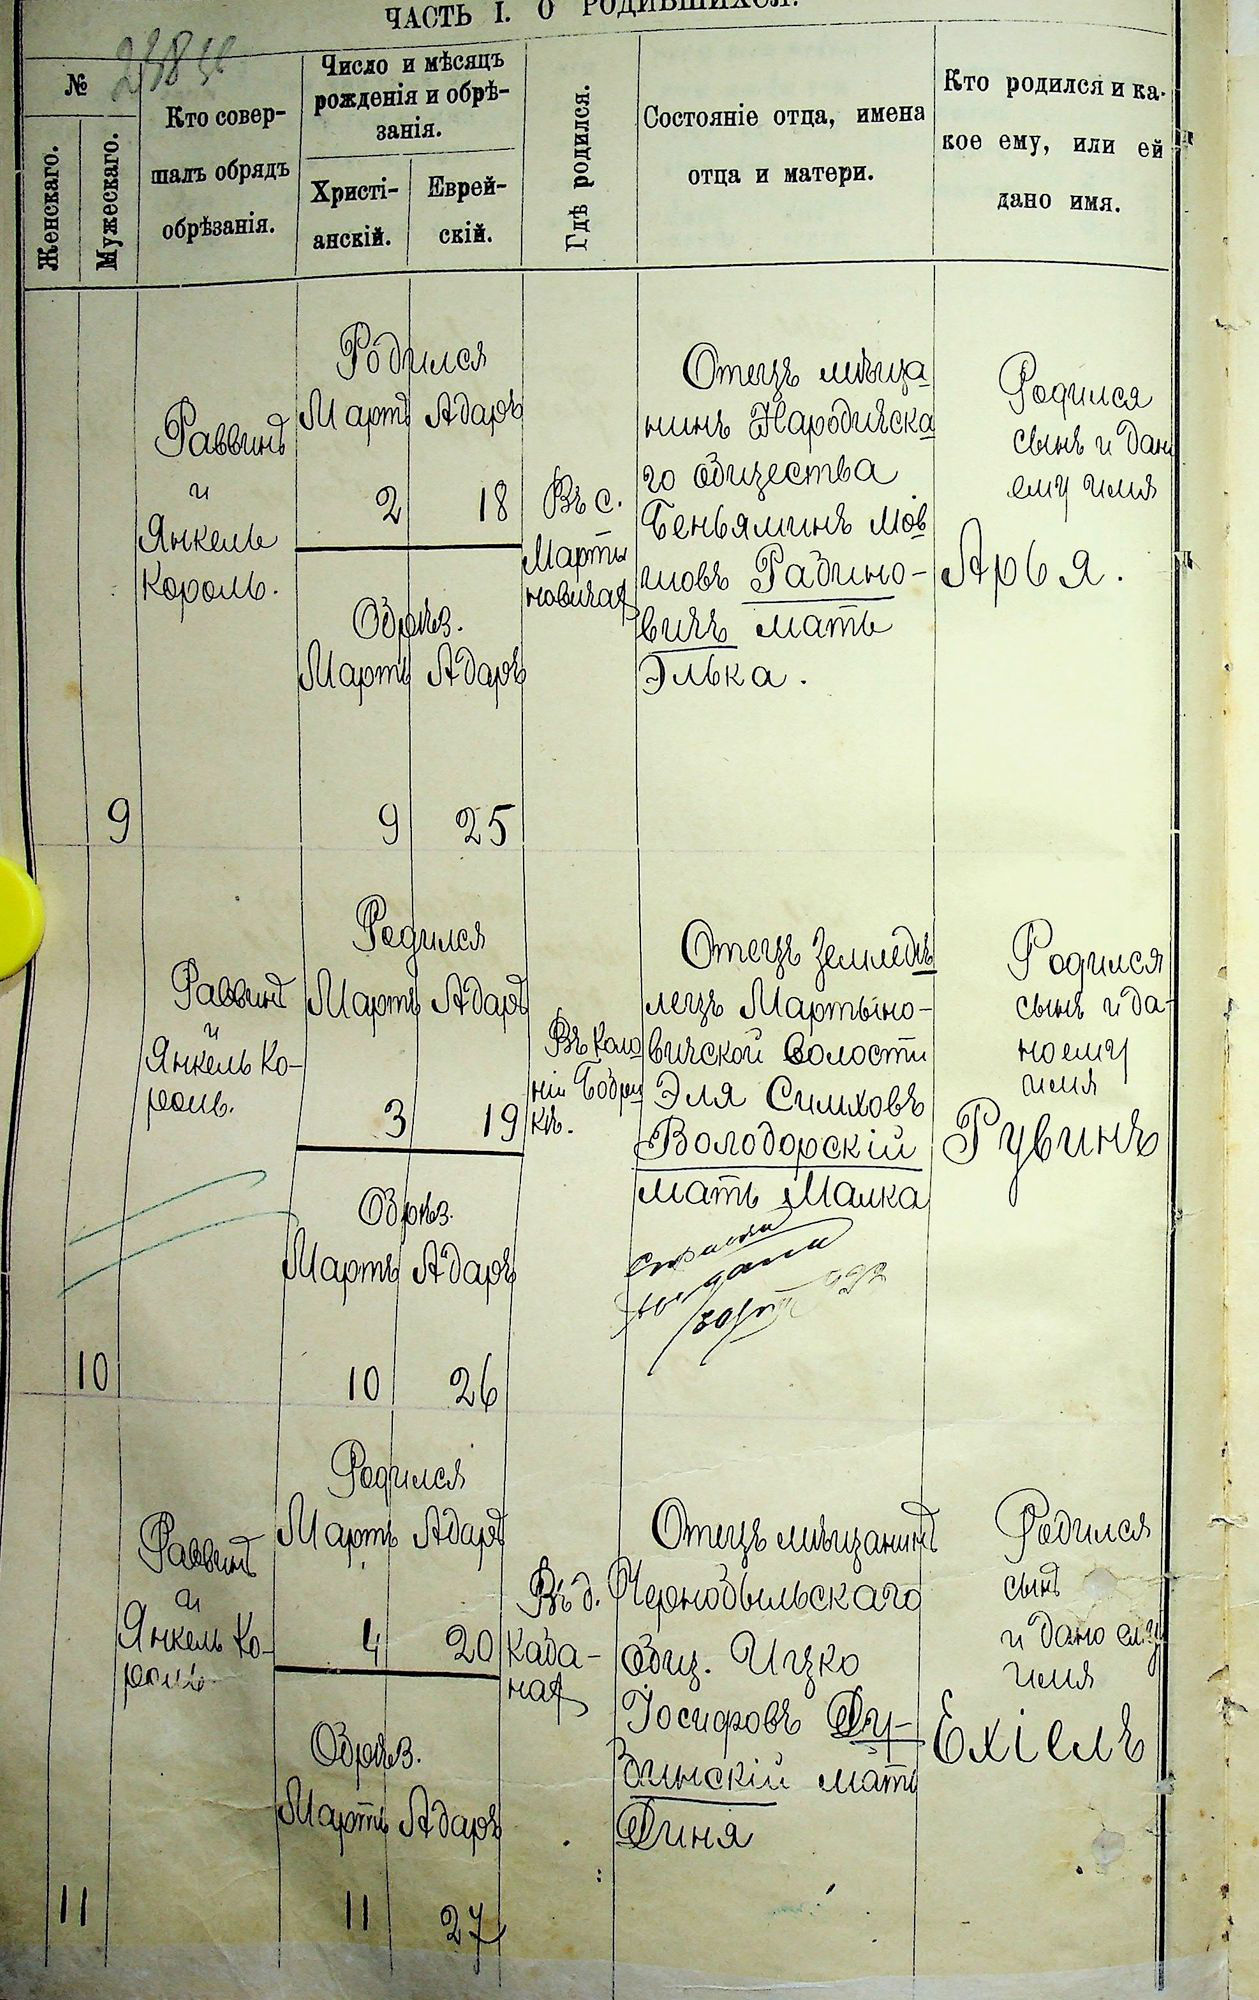 ЧАСТЬ I. О РОДИВШИХСЯ.
№
Женскаго.
Мужескаго.
Кто совер-
шалъ обрядъ
обрѣзанія.
Число и мѣсяцъ
рожденія и обрѣ-
занія.
Христі-
анскій.
Еврей-
скій.
Гдѣ родился.
Состояніе отца, имена
отца и матери.
Кто родился и ка-
кое ему, или ей
дано имя.
9
Раввинъ
и
Янкель
Король.
Родился
Мартъ Адаръ
2 18
Обрѣз.
Мартъ Адаръ
9 25
Въ с.
Марты
новичах
Отецъ мѣща
нинъ Народическа
го общества
Беньяминъ Мов
шовъ Рабино-
вичъ мать
Элька.
Родился
сынъ и дано
ему имя
Арья.
10
Раввинъ
и
Янкель Ко-
роль.
Родился
Мартъ Адаръ
3 19
Обрѣз.
Мартъ Адаръ
10 26
Въ коло
ніи Бобри
кѣ.
Отецъ Земледѣ
лецъ Мартыно-
вичской волости
Эля Симховъ
Володорскій
мать Малка
Родился
сынъ и да-
но ему
имя
Рувинъ
11
Раввинъ
и
Янкель Ко-
роль
Родился
Мартъ Адаръ
4 20
Обрѣз.
Мартъ Адаръ
11 27
Въ д.
Каба-
нах
Отецъ мѣщанинъ
Чернобыльскаго
общ. Ицко
Іосифовъ Ду-
бинскій мать
Диня
Родился
сынъ
и дано ему
имя
Ехіелъ